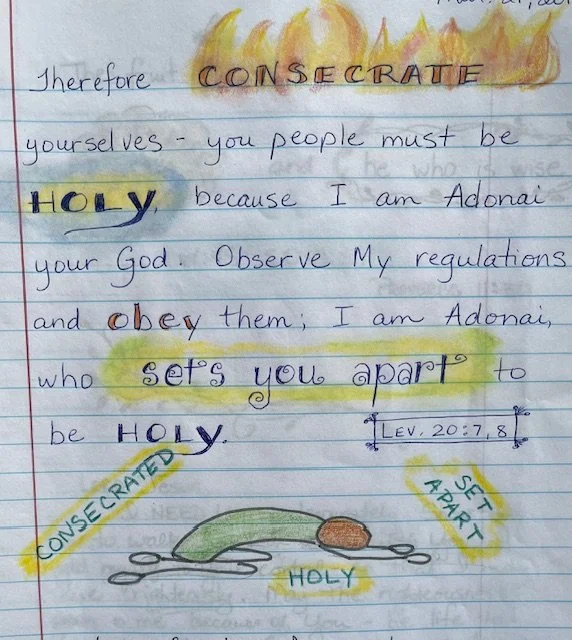 Therefore CONSECRATE
yourselves - you people must be
HOLY, because I am Adonai
your God. Observe My regulations
and obey them; I am Adonai,
who sets you apart to
be HOLY.
LEV. 20:7,8
CONSECRATED
SET
APART
HOLY